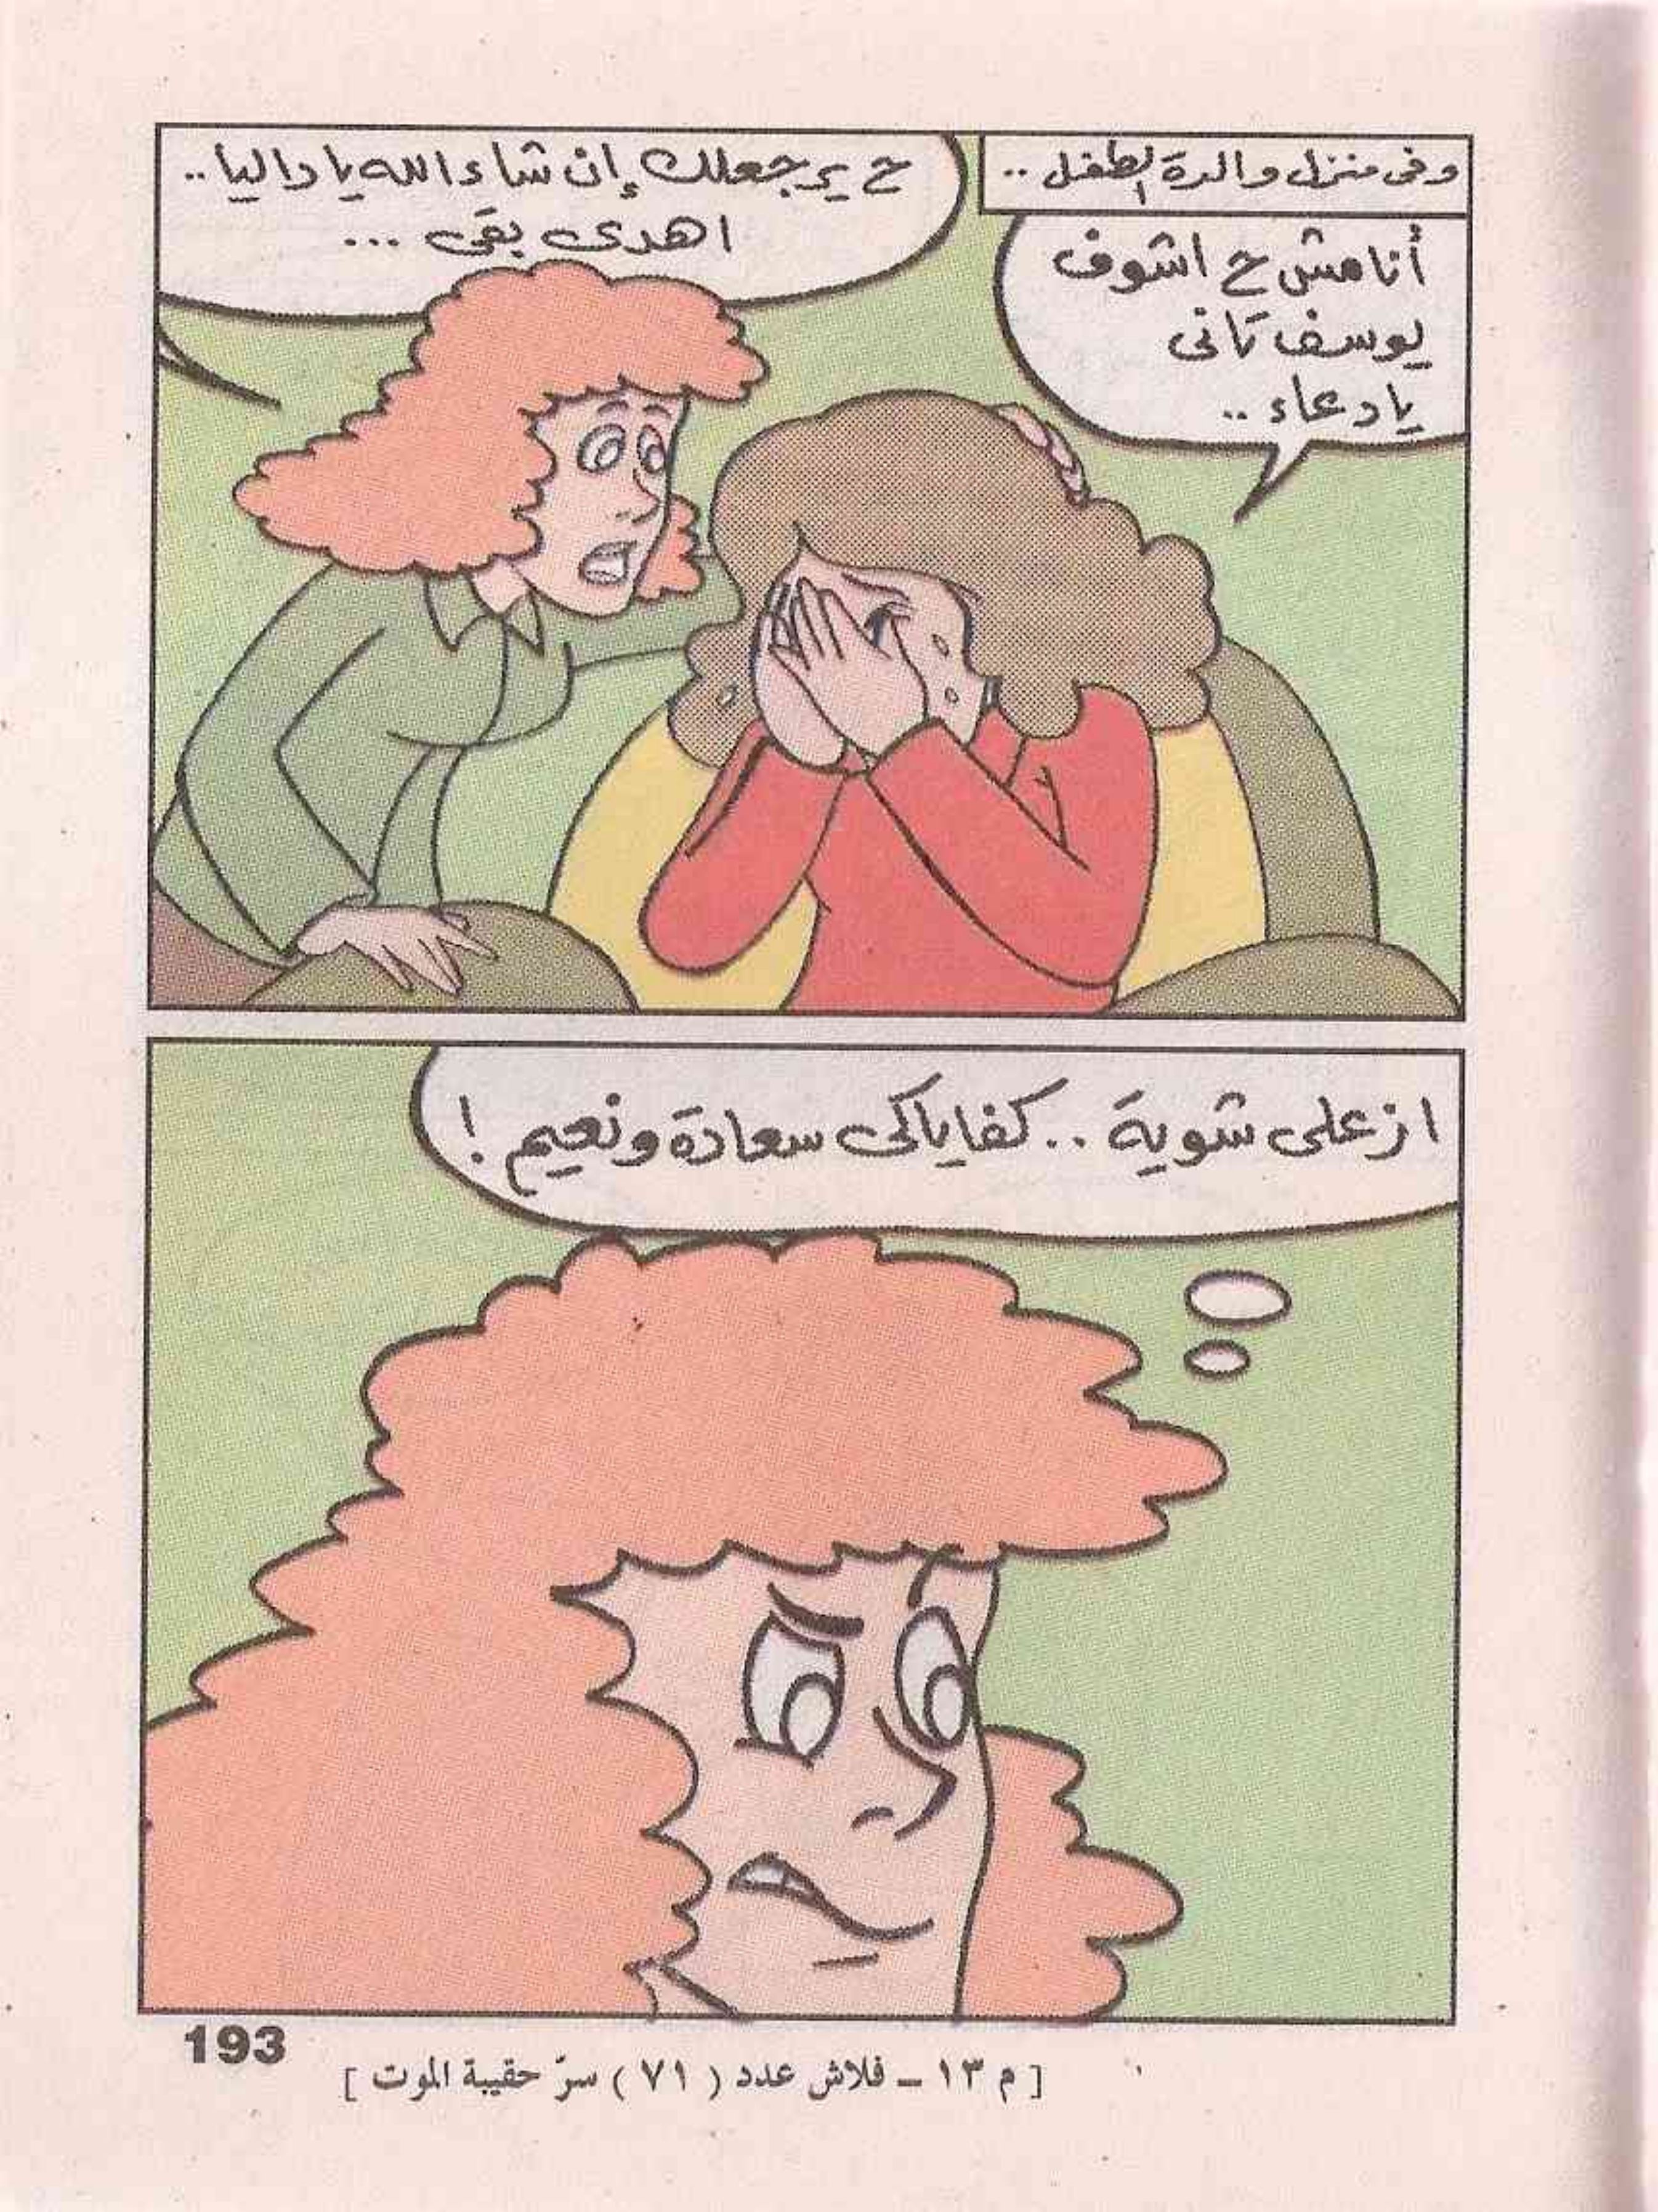 وفى منزل والدة الطفل ..
أنا مش ح اشوف
يوسف تانى
يا دعاء ..
ح يرجعلك إن شاء الله يا داليا ..
اهدى بقى ...
ازعلى شوية .. كفاياكى سعادة ونعيم !
193
[ م ١٣ ــ فلاش عدد ( ٧١ ) سرّ حقيبة الموت ]